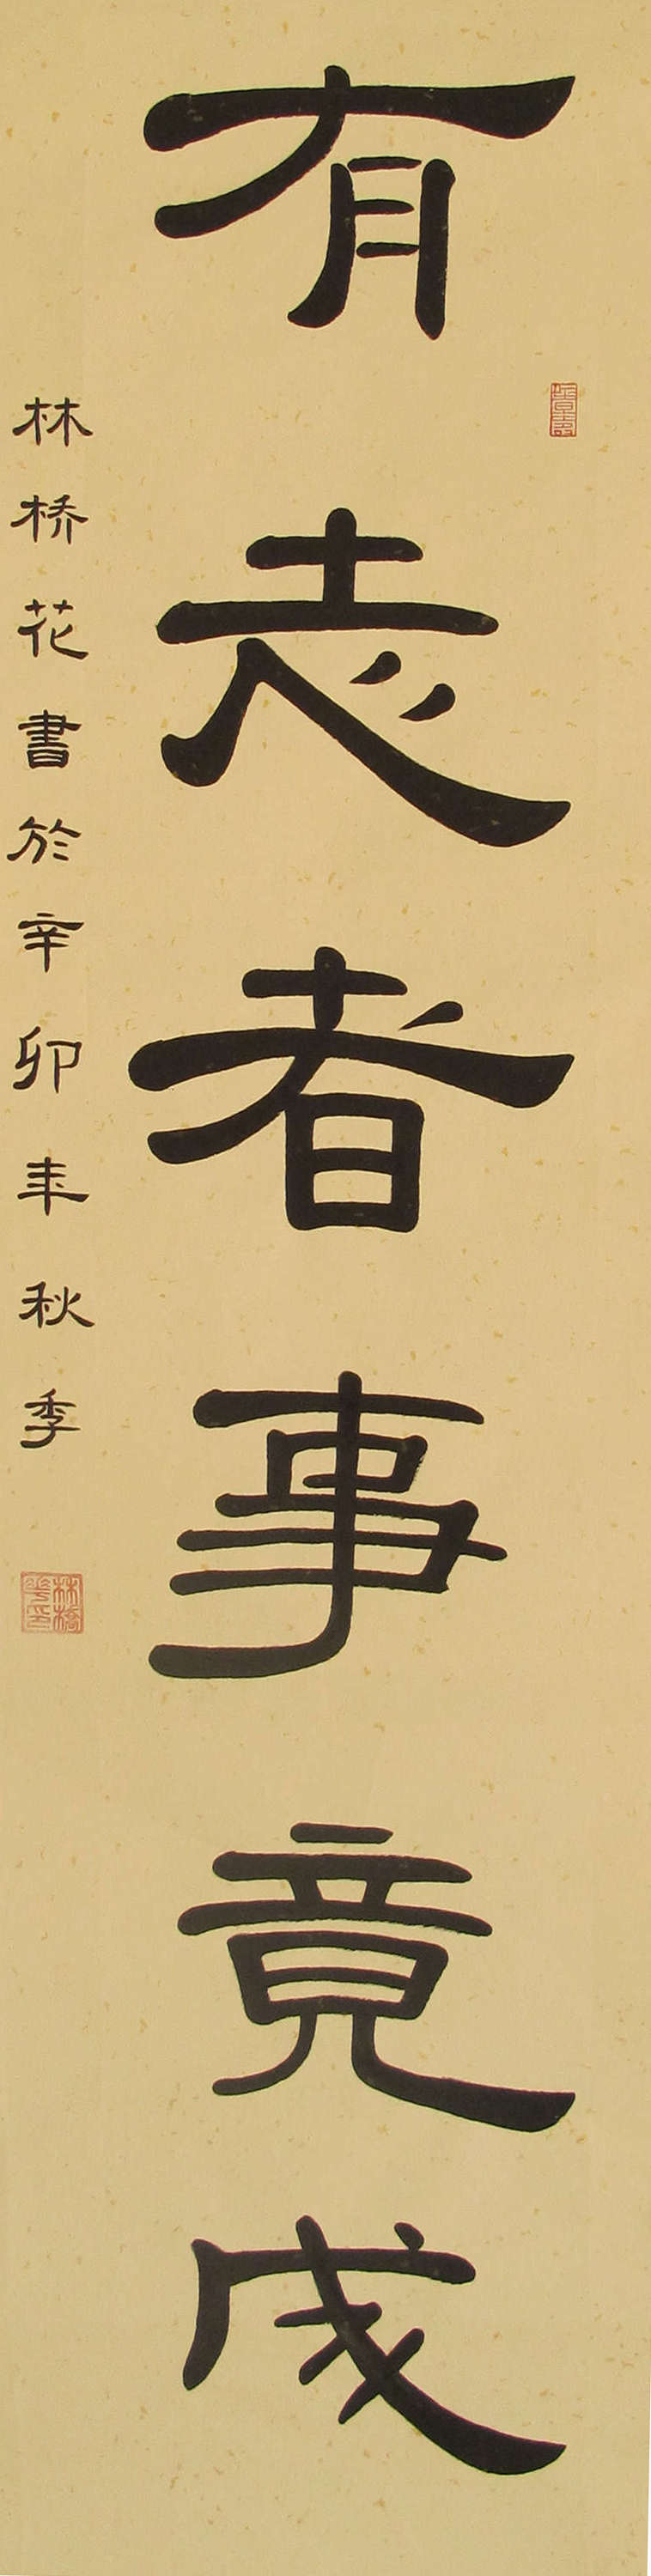 有志者事竟成
林桥花書於辛卯年秋季
林橋花印